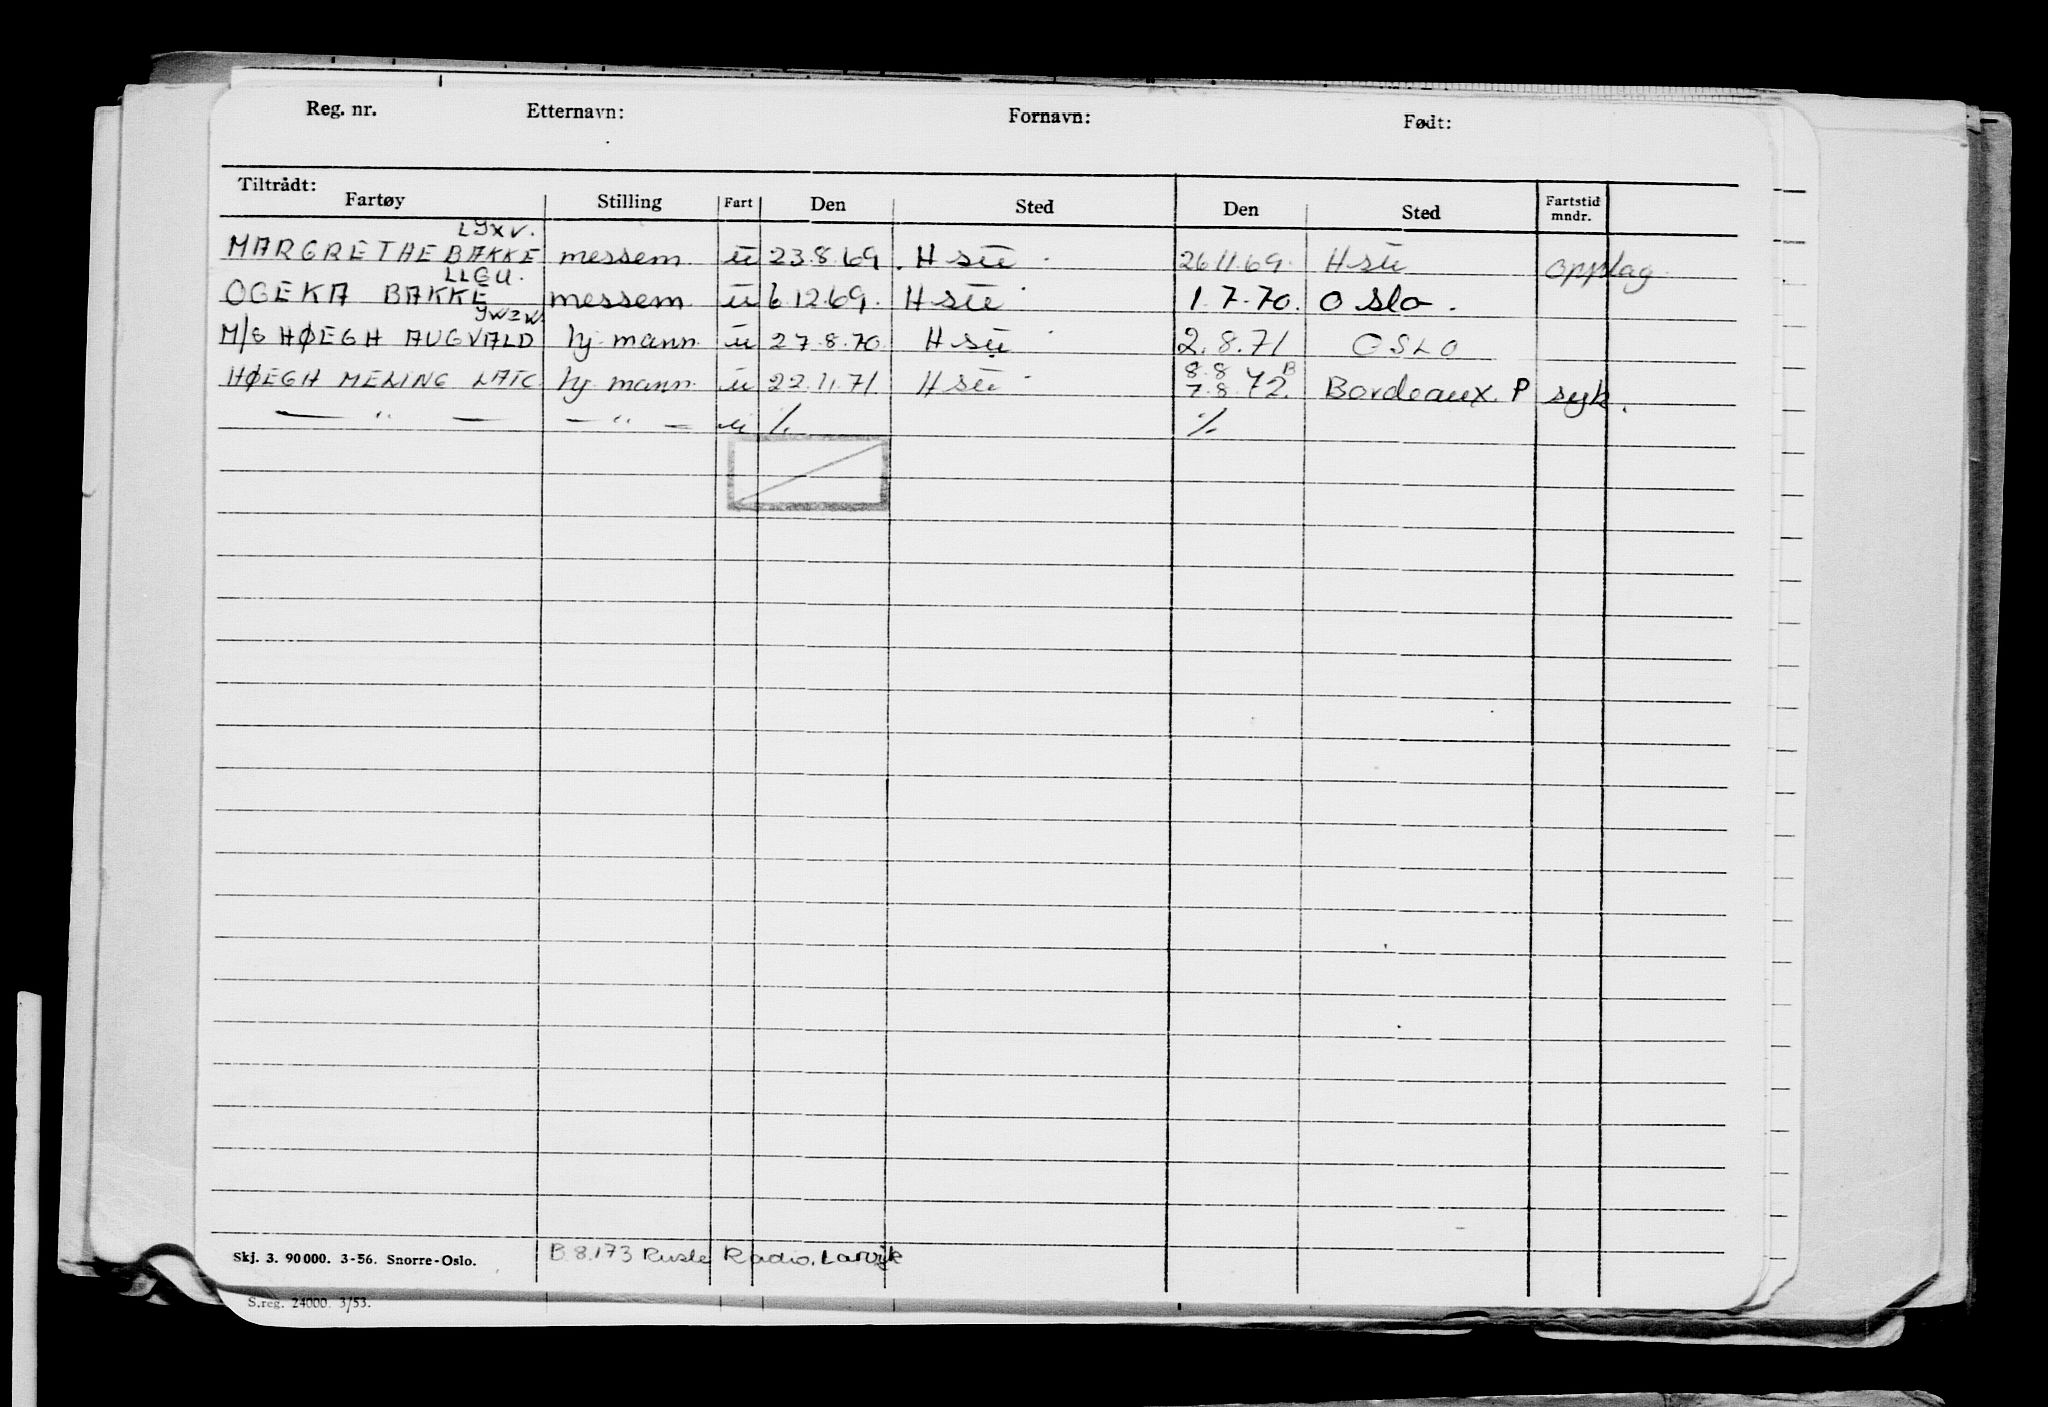 Reg. nr. Etternavn: Fornavn: Født:
Tiltrådt:
Fartøy Stilling Fart Den Sted Den Sted Fartstid mndr.
LYXV.
MARGRETHE BAKKE messem u 23.8.69. H sü 26.11.69. H sü opplag
LLGU.
OGEKA BAKKE messem u 6.12.69. H sü 1.7.70. Oslo.
M/S HØEGH AUGVALD hj. mann u 27.8.70. H sü 2.8.71 OSLO
8.8 B
HØEGH MERLING hj. mann u 22.11.71. H sü 7.8.72. Bordeaux. P syk.
— " — — " — u ./. ./.
Skj. 3. 90000. 3-56. Snorre-Oslo. B.8.173 Radio, Larvik
S.reg. 24000. 3/53.